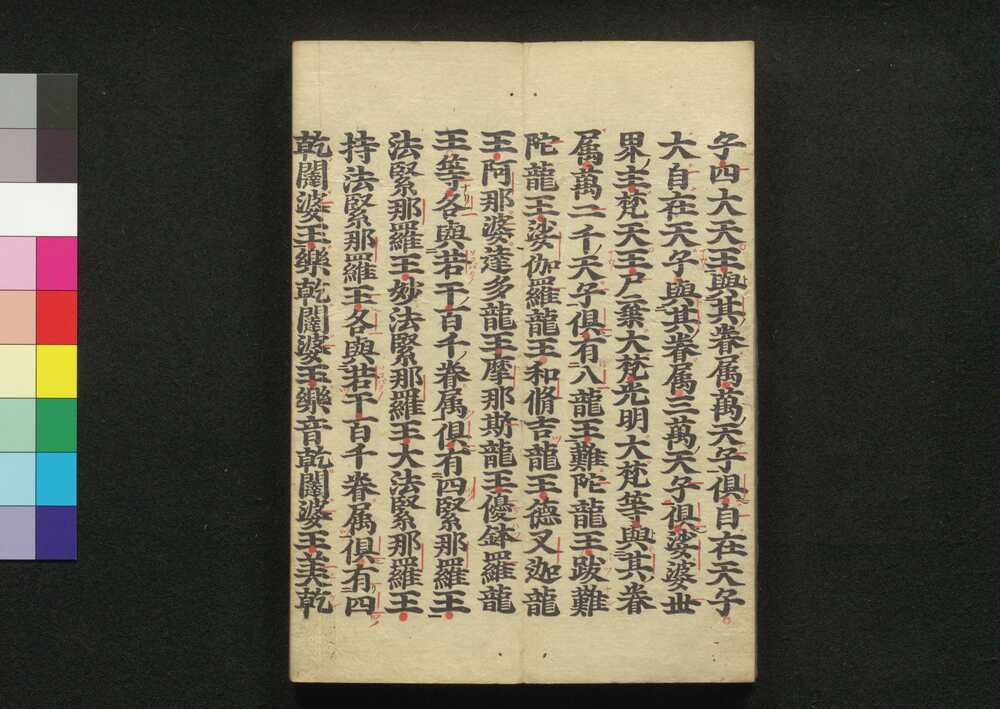 子四大天王與其眷属萬天子倶自在天子
大自在天子與其眷属三萬天子倶娑婆世
界主梵天王尸棄大梵光明大梵等與其眷
属萬二千天子倶有八龍王難陀龍王跋難
陀龍王娑伽羅龍王和脩吉龍王德叉迦龍
王阿那婆達多龍王摩那斯龍王優鉢羅龍
王等各與若干百千眷属倶有四緊那羅王
法緊那羅王妙法緊那羅王大法緊那羅王
持法緊那羅王各與若干百千眷属倶有四
乾闥婆王樂乾闥婆王樂音乾闥婆王美乾